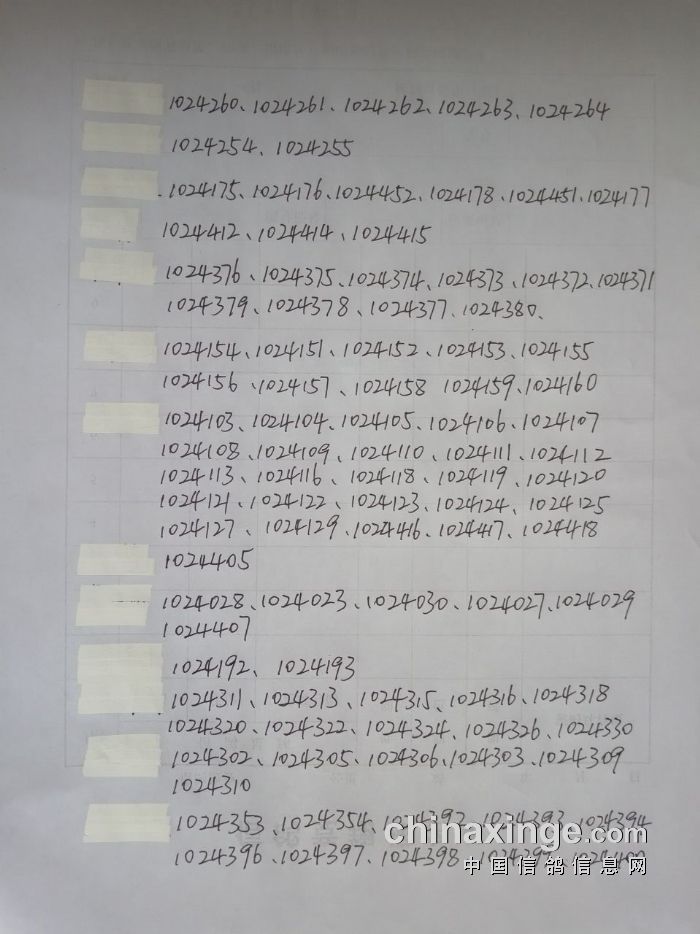 1024260、1024261、1024262、1024263、1024264
1024254、1024255
1024175、1024176、1024452、1024178、1024451、1024177
1024412、1024414、1024415
1024376、1024375、1024374、1024373、1024372、1024371
1024379、1024378、1024377、1024380、
1024154、1024151、1024152、1024153、1024155
1024156、1024157、1024158 1024159、1024160
1024103、1024104、1024105、1024106、1024107
1024108、1024109、1024110、1024111、1024112
1024113、1024116、1024118、1024119、1024120
1024121、1024122、1024123、1024124、1024125
1024127、1024129、1024416、1024417、1024418
1024405
1024028、1024023、1024030、1024027、1024029
1024407
1024192、1024193
1024311、1024313、1024315、1024316、1024318
1024320、1024322、1024324、1024326、1024330
1024302、1024305、1024306、1024303、1024309
1024310
1024353、1024354、1024392、1024393、1024394
chinaxinge.com
1024396、1024397、1024398、
中国信鸽信息网